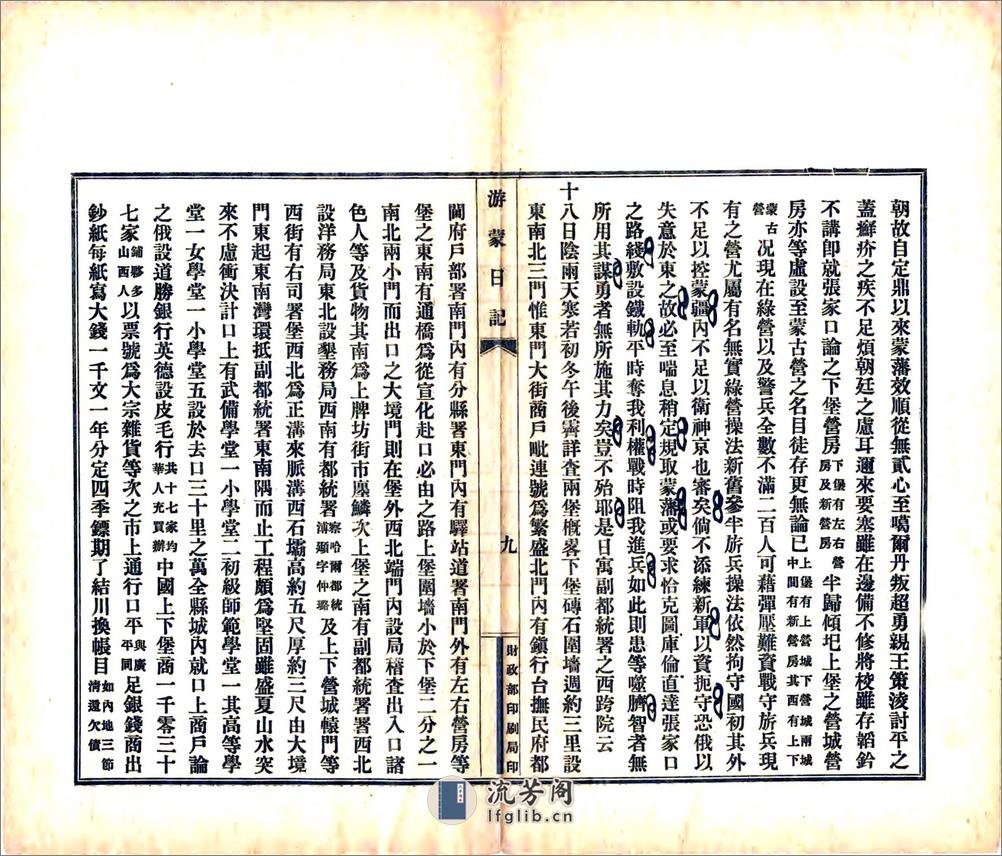 朝故自定鼎以來蒙藩效順從無貳心至噶爾丹叛超勇親王策淩討平之
蓋癬疥之疾不足煩朝廷之慮耳邇來要塞雖在邊備不修將校雖存韜鈐
不講即就張家口論之下堡營房下堡有左右營房及新營房半歸傾圮上堡之營城營
房亦等虛設至蒙古營之名目徒存更無論已上堡有上營城下營城兩城中間有新營房其西有上下
蒙古營況現在綠營以及警兵全數不滿二百人可藉彈壓難資戰守旅兵現
有之營尤屬有名無實綠營操法新舊參半旅兵操法依然拘守國初其外
不足以控蒙疆內不足以衛神京也審矣倘不添練新軍以資扼守恐俄以
失意於東之故必至喘息稍定規取蒙藩或要求恰克圖庫倫直達張家口
之路綫敷設鐵軌平時奪我利權戰時阻我進兵如此則患等噬臍智者無
所用其謀勇者無所施其力矣豈不殆耶是日寓副都統署之西跨院云
十八日陰雨天寒若初冬午後霽詳查兩堡概畧下堡磚石圍墻週約三里設
東南北三門惟東門大街商戶毗連號爲繁盛北門內有鎭行台撫民府都
游蒙日記
九
財政部印刷局印
閫府戶部署南門內有分縣署東門內有驛站道署南門外有左右營房等
堡之東南有通橋爲從宣化赴口必由之路上堡圍墻小於下堡二分之一
南北兩小門而出口之大境門則在堡外西北端門內設局稽查出入口諸
色人等及貨物其南爲上牌坊街市廛鱗次上堡之南有副都統署署西北
設洋務局東北設墾務局西南有都統署察哈爾都統溥頲字仲璐及上下營城轅門等
西街有右司署堡西北爲正溝來脈溝西石壩高約五尺厚約三尺由大境
門東起東南灣環抵副都統署東南隅而止工程頗爲堅固雖盛夏山水突
來不慮衝決計口上有武備學堂一小學堂二初級師範學堂一其高等學
堂一女學堂一小學堂五設於去口三十里之萬全縣城內就口上商戶論
之俄設道勝銀行英德設皮毛行共十七家均華人充買辦中國上下堡商一千零三十
七家鋪夥多山西人以票號爲大宗雜貨等次之市上通行口平與廣平同足銀錢商出
鈔紙每紙寫大錢一千文一年分定四季鏢期了結川換帳目如內地三節清還欠債
流芳閣
lfglib.cn